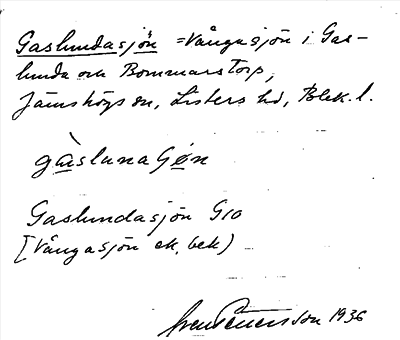 Gaslundasjön = Vångasjön i Gas-
lunda och Bommarstorp,
Jämshögs sn, Listers hd, Blek. l.
gàslunaʃøn
Gaslundasjön G10
[Vångasjön ek, bek)
Sven Petersson 1936